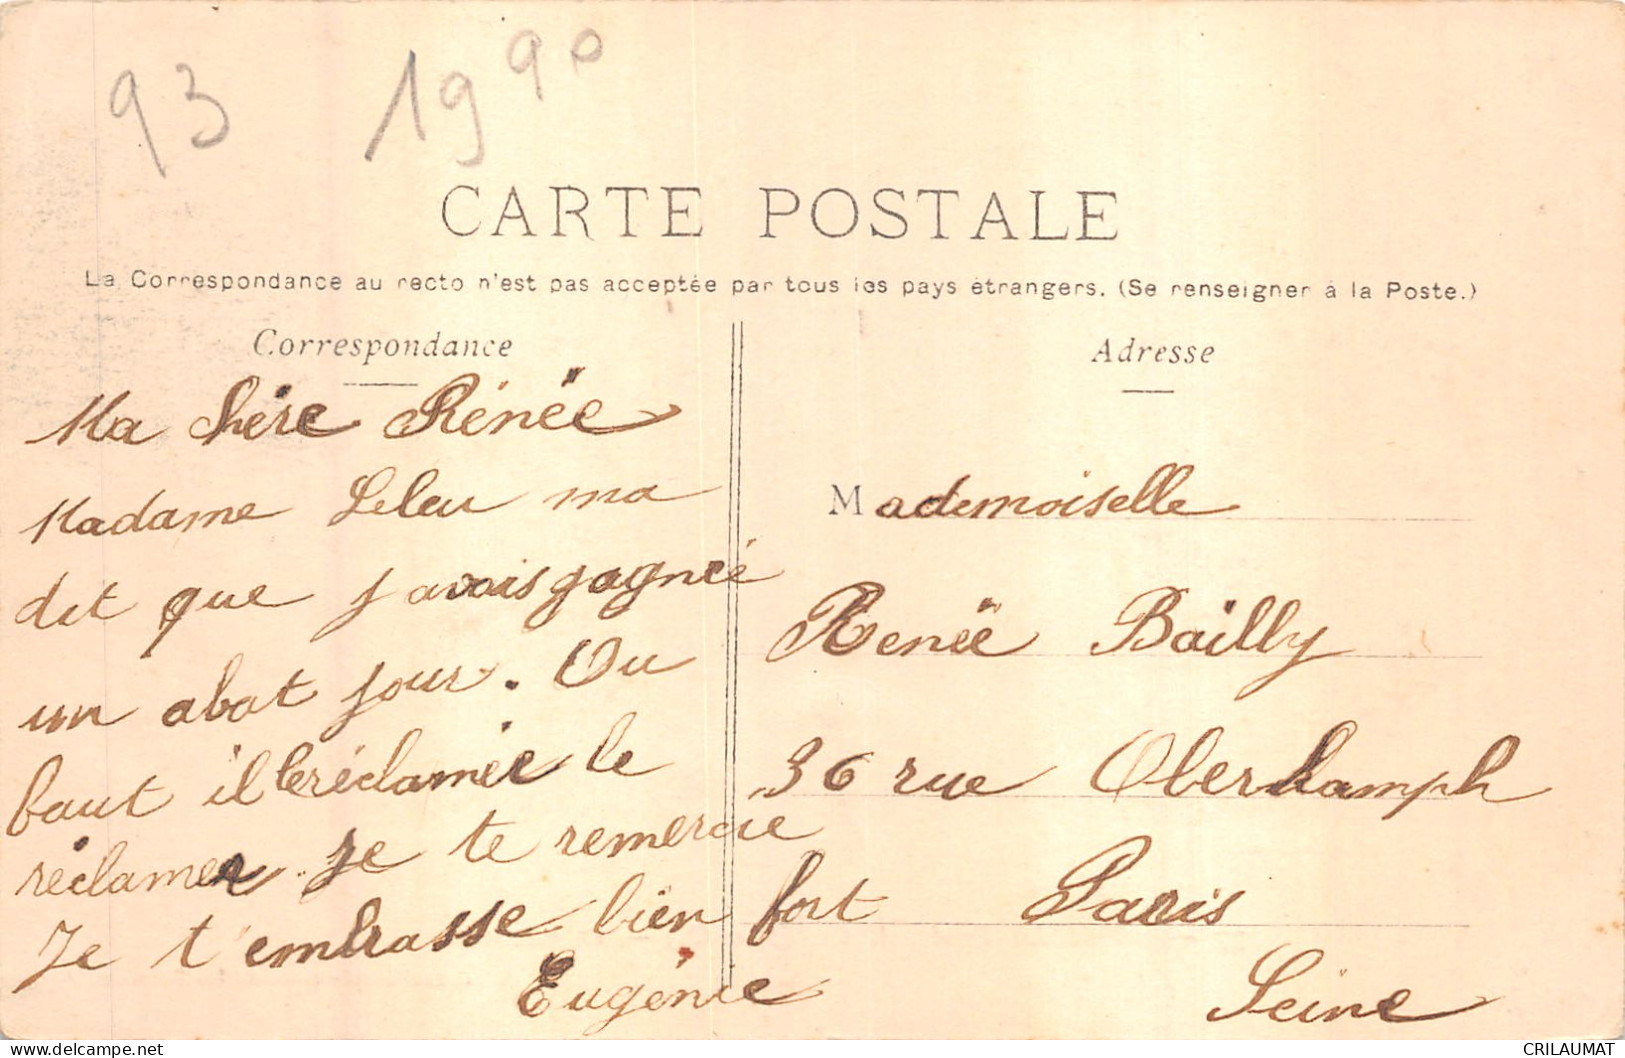 93 19 90
CARTE POSTALE
La Correspondance au recto n'est pas acceptée par tous les pays étrangers. (Se renseigner à la Poste.)
Correspondance
Ma chère Rénée
Madame Leleu ma
dit que j avais gagnée
un abat jour. Ou
faut il réclamée le
réclamer. Je te remercie
Je t'embrasse bien fort
Eugénie
Adresse
Mademoiselle
Renée Bailly
36 rue Oberkamph
Paris
Seine
CRILAUMAT